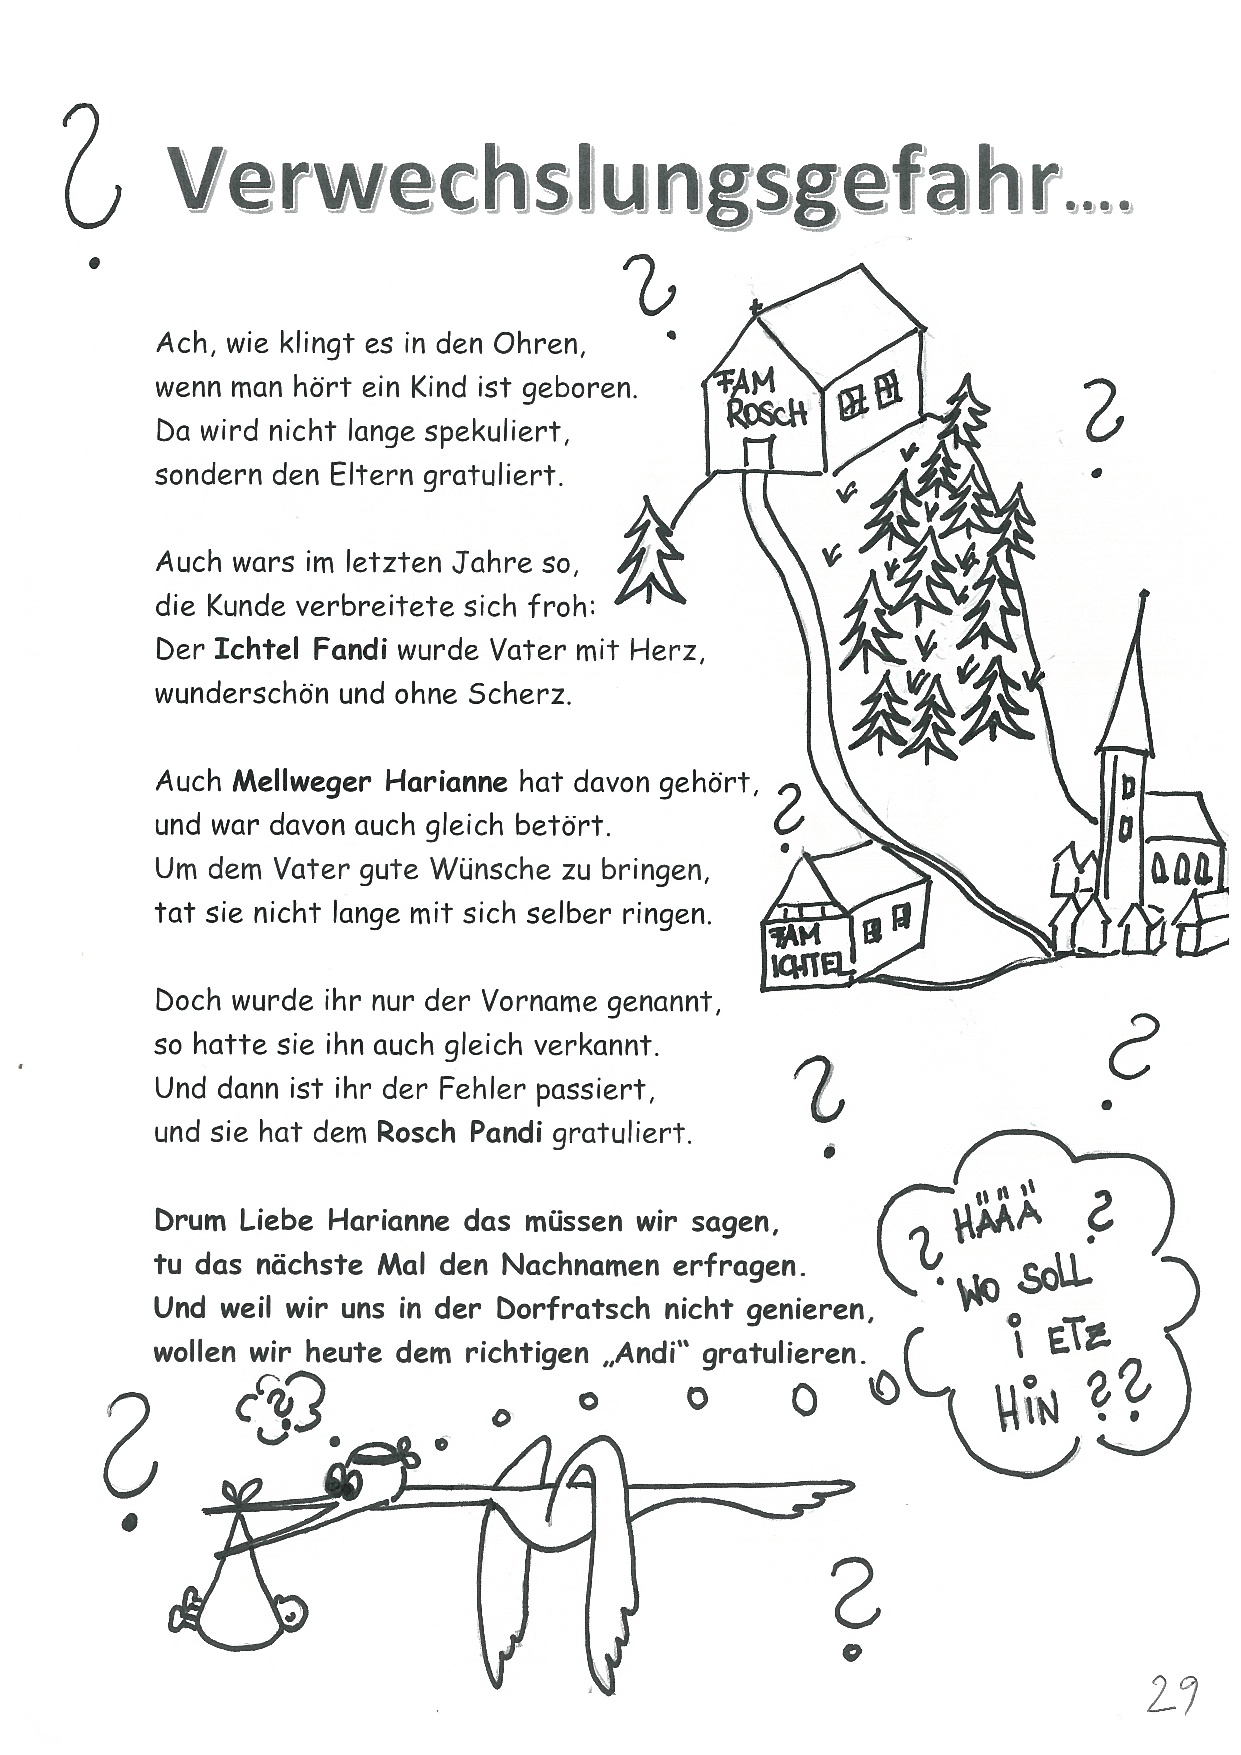 Verwechslungsgefahr....
Ach, wie klingt es in den Ohren,
wenn man hört ein Kind ist geboren.
Da wird nicht lange spekuliert,
sondern den Eltern gratuliert.
Auch wars im letzten Jahre so,
die Kunde verbreitete sich froh:
Der Ichtel Fandi wurde Vater mit Herz,
wunderschön und ohne Scherz.
Auch Mellweger Harianne hat davon gehört,
und war davon auch gleich betört.
Um dem Vater gute Wünsche zu bringen,
tat sie nicht lange mit sich selber ringen.
Doch wurde ihr nur der Vorname genannt,
so hatte sie ihn auch gleich verkannt.
Und dann ist ihr der Fehler passiert,
und sie hat dem Rosch Pandi gratuliert.
Drum Liebe Harianne das müssen wir sagen,
tu das nächste Mal den Nachnamen erfragen.
Und weil wir uns in der Dorfratsch nicht genieren,
wollen wir heute dem richtigen „Andi“ gratulieren.
FAM
ROSCH
FAM
ICHTEL
? HÄÄÄ ?
WO SOLL
i ETZ
HiN ??
29